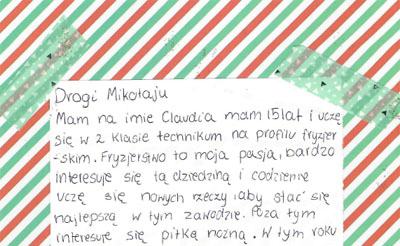 Drogi Mikołaju
Mam na imie Claudia mam 15 lat i uczę
się w 2 klasie technikum na profilu fryzjer
-skim. Fryzjerstwo to moja pasja, bardzo
interesuje się tą dziedziną i codziennie
uczę się nowych rzeczy aby stać się
najlepszą w tym zawodzie. Poza tym
interesuje się piłką nożną. W tym roku